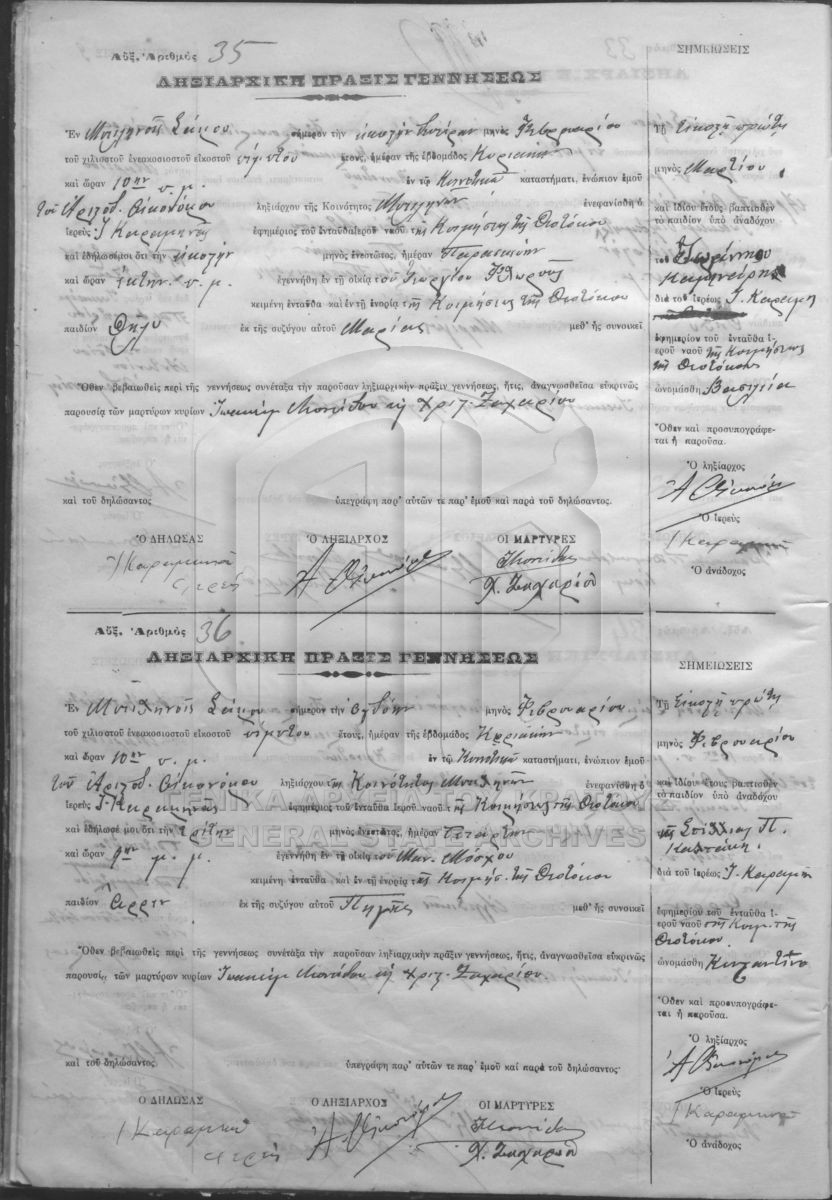 Αὔξ. Ἀριθμὸς 35
ΛΗΞΙΑΡΧΙΚΗ ΠΡΑΞΙΣ ΓΕΝΝΗΣΕΩΣ
Ἐν σήμερον τὴν εἰκοστὴν μηνὸς Φεβρουαρίου
τοῦ χιλιοστοῦ ἐνεακοσιοστοῦ εἰκοστοῦ πέμπτου ἔτους, ἡμέραν τῆς ἑβδομάδος Κυριακὴν
καὶ ὥραν 10ην π. μ. ἐν τῷ Κοινοτικῷ καταστήματι, ἐνώπιον ἐμοῦ
τοῦ Ἀριστ. Οἰκονόμου ληξιάρχου τῆς Κοινότητος ἐνεφανίσθη ὁ
ἱερεὺς Ι Καραμηνᾶς ἐφημέριος τοῦ ἐνταῦθα ἱεροῦ ναοῦ τῆς Κοιμήσεως τῆς Θεοτόκου
καὶ ἐδήλωσέ μοι ὅτι τὴν εἰκοστὴν μηνὸς ἐνεστῶτος, ἡμέραν Παρασκευὴν
καὶ ὥραν ἕκτην π. μ. ἐγεννήθη ἐν τῇ οἰκίᾳ τοῦ Γεωργίου
κειμένῃ ἐνταῦθα καὶ ἐν τῇ ἐνορίᾳ τῆς Κοιμήσεως τῆς Θεοτόκου
παιδίον Θῆλυ ἐκ τῆς συζύγου αὐτοῦ Μαρίας μεθ' ἧς συνοικεῖ
Ὅθεν βεβαιωθεὶς περὶ τῆς γεννήσεως συνέταξα τὴν παροῦσαν ληξιαρχικὴν πρᾶξιν γεννήσεως, ἥτις, ἀναγνωσθεῖσα εὐκρινῶς
παρουσίᾳ τῶν μαρτύρων κυρίων Ἰωακεὶμ καὶ Χριστ. Ζαχαρίου
καὶ τοῦ δηλώσαντος ὑπεγράφη παρ' αὐτῶν τε παρ' ἐμοῦ καὶ παρὰ τοῦ δηλώσαντος.
Ὁ ΔΗΛΩΣΑΣ Ὁ ΛΗΞΙΑΡΧΟΣ ΟΙ ΜΑΡΤΥΡΕΣ
Ι Καραμηνᾶς Α Οἰκονόμου
ἱερεύς Χ. Ζαχαρίου
ΣΗΜΕΙΩΣΕΙΣ
Τῇ εἰκοστῇ πρώτῃ
μηνὸς Μαρτίου
καὶ ἰδίου ἔτους βαπτισθὲν
τὸ παιδίον ὑπὸ ἀναδόχου
τοῦ Ἰωάννου
διὰ τοῦ ἱερέως Ι. Καραμηνᾶ
ἐφημερίου τοῦ ἐνταῦθα ἱ-
εροῦ ναοῦ τῆς Κοιμήσεως
τῆς Θεοτόκου
ὠνομάσθη Βασιλεία
Ὅθεν καὶ προσυπογράφε-
ται ἡ παροῦσα.
Ὁ ληξίαρχος
Α Οἰκονόμου
Ὁ ἱερεὺς
Ι Καραμηνᾶς
Ὁ ἀνάδοχος
Αὔξ. Ἀριθμὸς 36
ΛΗΞΙΑΡΧΙΚΗ ΠΡΑΞΙΣ ΓΕΝΝΗΣΕΩΣ
Ἐν σήμερον τὴν ὀγδόην μηνὸς Φεβρουαρίου
τοῦ χιλιοστοῦ ἐνεακοσιοστοῦ εἰκοστοῦ πέμπτου ἔτους, ἡμέραν τῆς ἑβδομάδος Κυριακὴν
καὶ ὥραν 10ην π. μ. ἐν τῷ Κοινοτικῷ καταστήματι, ἐνώπιον ἐμοῦ
τοῦ Ἀριστοβ. Οἰκονόμου ληξιάρχου τῆς Κοινότητος ἐνεφανίσθη ὁ
ἱερεὺς Ι. Καραμηνᾶς ἐφημέριος τοῦ ἐνταῦθα ἱεροῦ ναοῦ τῆς Κοιμήσεως τῆς Θεοτόκου
καὶ ἐδήλωσέ μοι ὅτι τὴν τρίτην μηνὸς ἐνεστῶτος, ἡμέραν
καὶ ὥραν 9ην μ. μ. ἐγεννήθη ἐν τῇ οἰκίᾳ τοῦ Μαν. Μόσχου
κειμένῃ ἐνταῦθα καὶ ἐν τῇ ἐνορίᾳ τῆς Κοιμήσ. τῆς Θεοτόκου
παιδίον Ἄρρεν ἐκ τῆς συζύγου αὐτοῦ μεθ' ἧς συνοικεῖ
Ὅθεν βεβαιωθεὶς περὶ τῆς γεννήσεως συνέταξα τὴν παροῦσαν ληξιαρχικὴν πρᾶξιν γεννήσεως, ἥτις, ἀναγνωσθεῖσα εὐκρινῶς
παρουσίᾳ τῶν μαρτύρων κυρίων Ἰωακεὶμ καὶ Χριστ. Ζαχαρίου.
καὶ τοῦ δηλώσαντος ὑπεγράφη παρ' αὐτῶν τε παρ' ἐμοῦ καὶ παρὰ τοῦ δηλώσαντος.
Ὁ ΔΗΛΩΣΑΣ Ὁ ΛΗΞΙΑΡΧΟΣ ΟΙ ΜΑΡΤΥΡΕΣ
Ι Καραμηνᾶς Α. Οἰκονόμου
ἱερεύς Χ. Ζαχαρίου
ΣΗΜΕΙΩΣΕΙΣ
Τῇ εἰκοστῇ πρώτῃ
μηνὸς Φεβρουαρίου
καὶ ἰδίου ἔτους βαπτισθὲν
τὸ παιδίον ὑπὸ ἀναδόχου
τῆς Π.
διὰ τοῦ ἱερέως Ι. Καραμηνᾶ
ἐφημερίου τοῦ ἐνταῦθα ἱ-
εροῦ ναοῦ τῆς Κοιμ. τῆς
Θεοτόκου
ὠνομάσθη Κωνσταντῖνο
Ὅθεν καὶ προσυπογράφε-
ται ἡ παροῦσα.
Ὁ ληξίαρχος
Α Οἰκονόμου
Ὁ ἱερεὺς
Ι Καραμηνᾶς
Ὁ ἀνάδοχος
ΓΕΝΙΚΑ ΑΡΧΕΙΑ ΤΟΥ ΚΡΑΤΟΥΣ
GENERAL STATE ARCHIVES